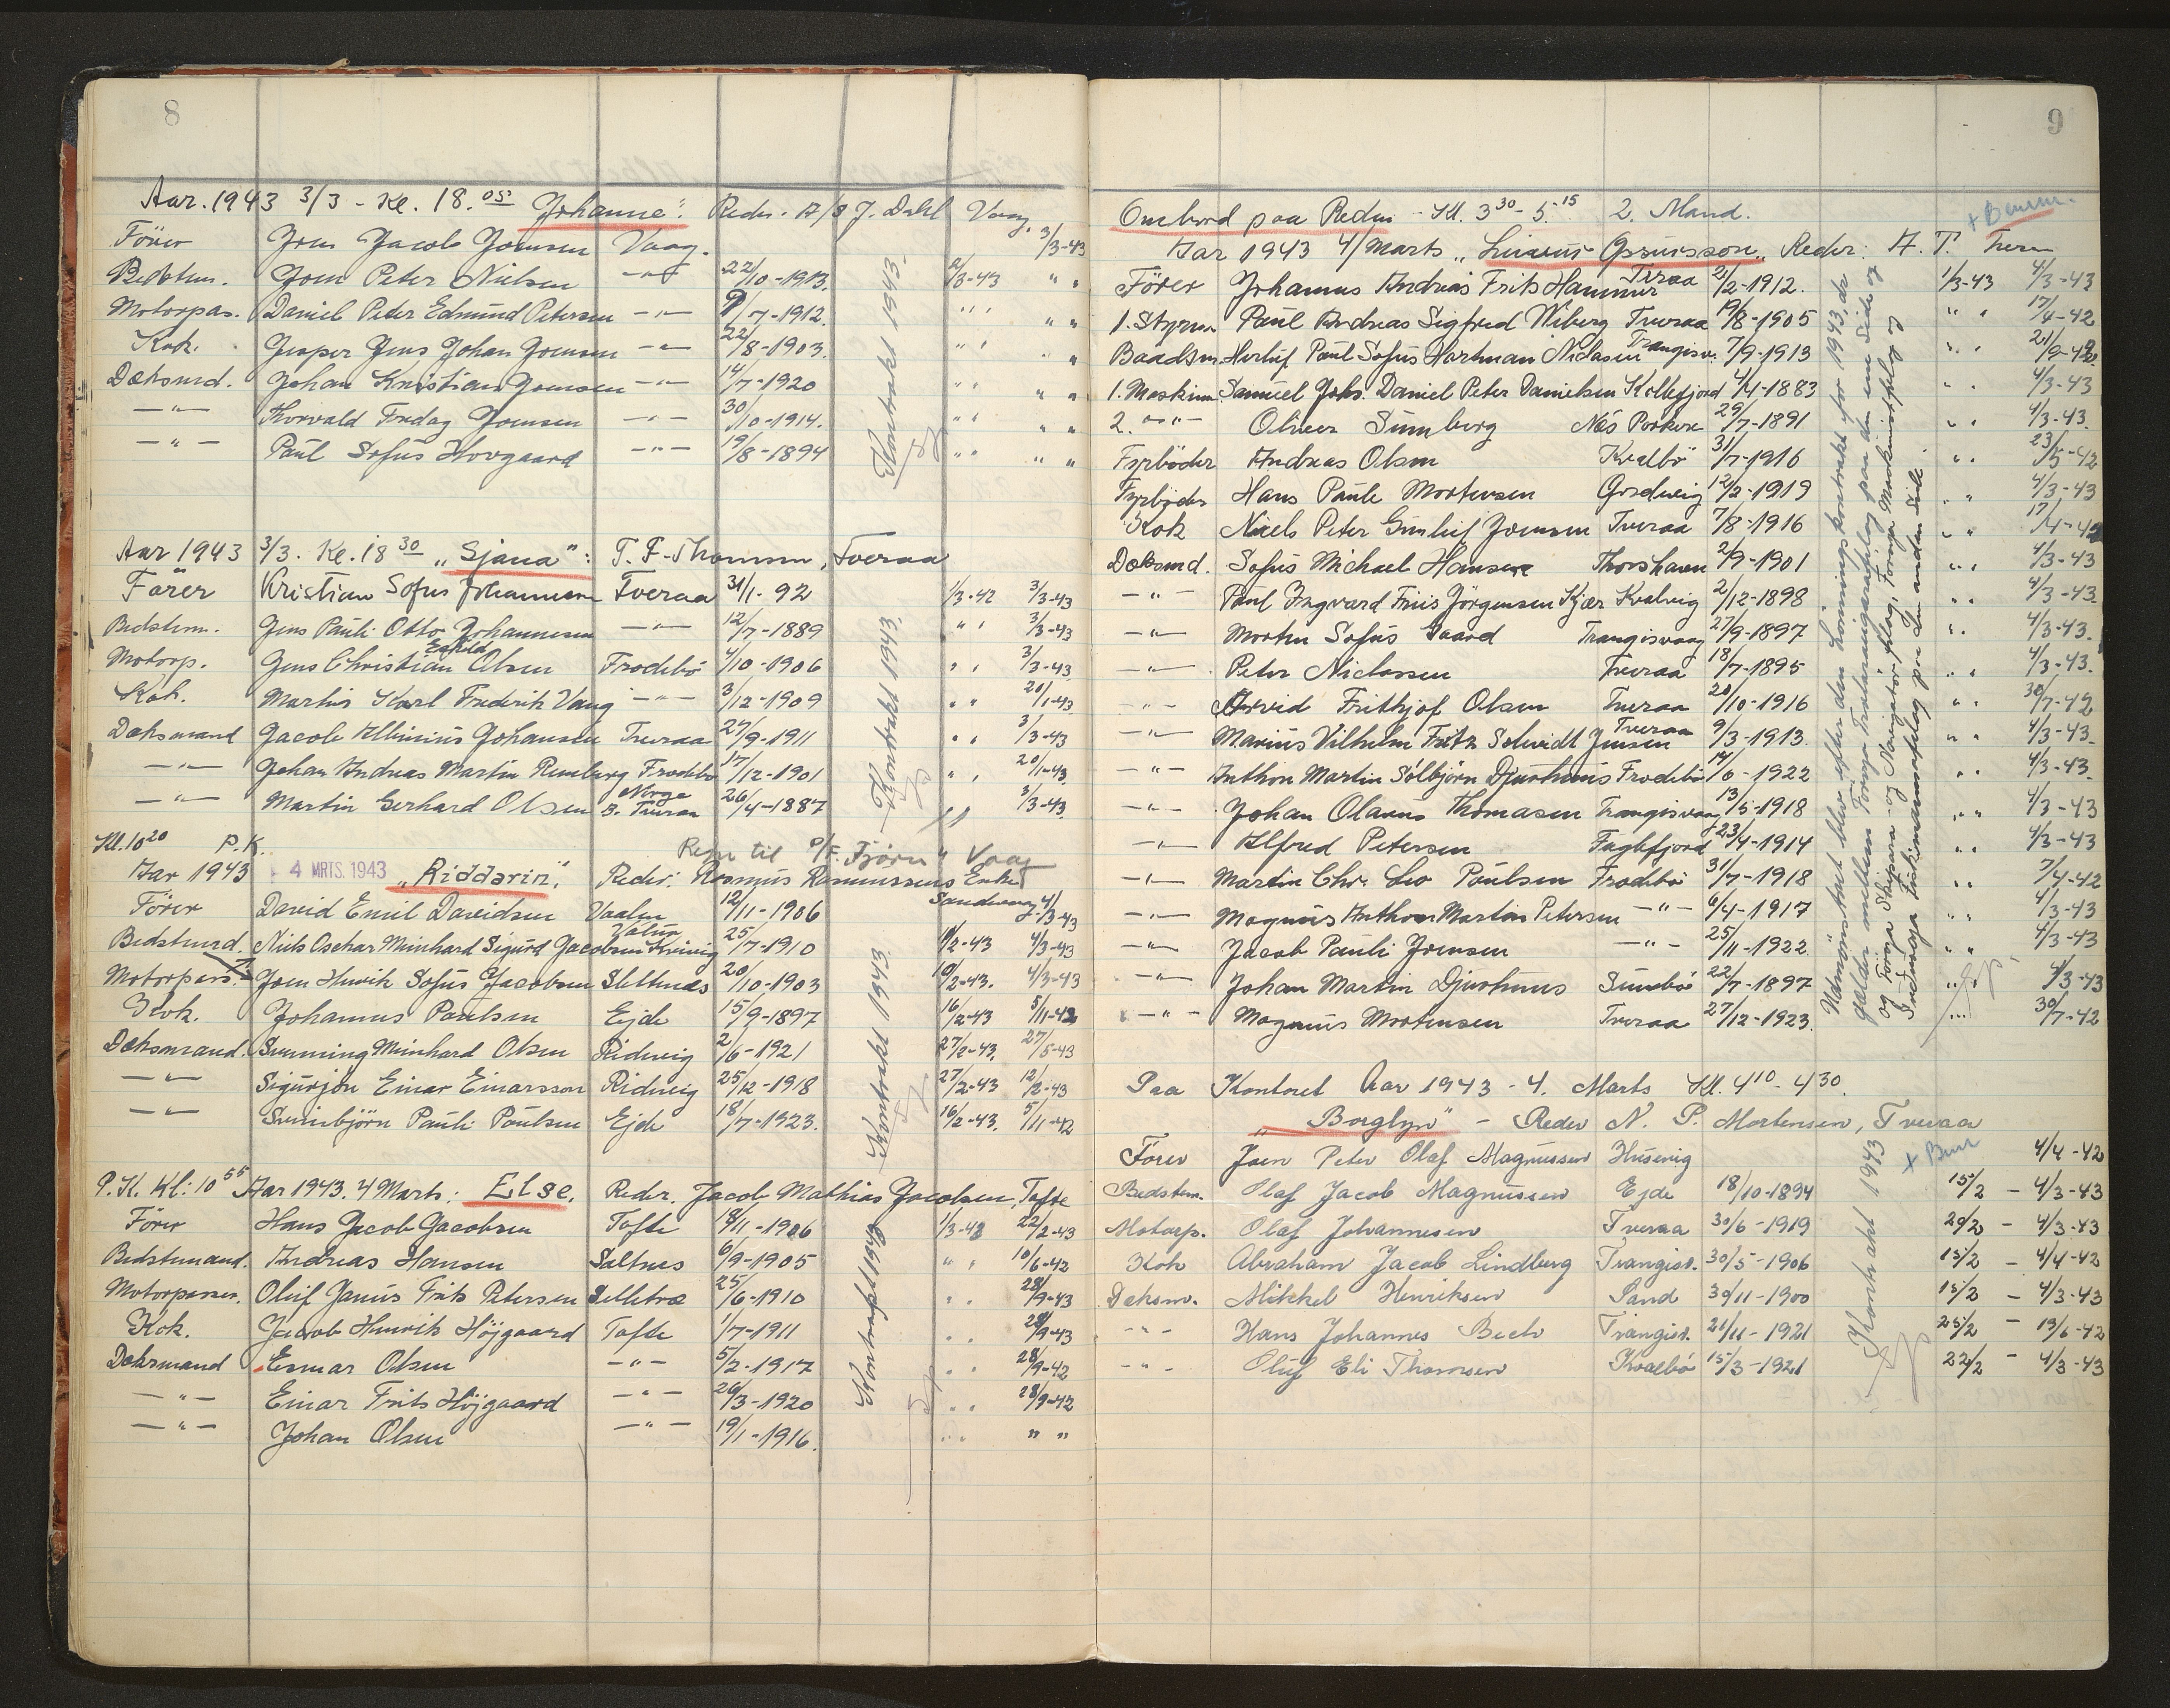 8
Aar. 1943 3/3 - Kl. 18.05 Johanne": Reder. A/S J. Dahl Vaag.
Förer Jens Jacob Joensen Vaag. 3/3-43
Bedstem. Joen Peter Nielsen -"- 22/10-1913. 2/3-43 " "
Motorpas. Daniel Peter Edmund Petersen -"- 9/7-1912. " " " "
Kok. Jesper Jens Johan Joensen -"- 22/8-1903. " " " "
Dæksmd. Johan Kristian Joensen -"- 14/7-1920 " " " "
-"- Thorvald Fredag Joensen -"- 30/10-1914. " " " "
-"- Paul Sofus Hovgaard -"- 19/8-1894 " " " "
Kontrakt 1943.
Aar 1943 3/3. Kl. 18 30 „Sjana": T. F. Thomsen, Tveraa
Förer Kristian Sofus Johannesen Tveraa 31/1-92 1/3-42 3/3-43
Bedstem. Jens Pauli Otto Johannesen -"- 12/7-1889 " " 3/3-43
Motorp. Jens Christian Olsen Frodebö 4/10-1906 " " 3/3-43
Kok. Martin Karl Frederik Vang -"- 3/12-1909 " " 20/1-43
Dæksmand Jacob Johansen Tveraa 27/9-1911 " " 3/3-43
-"- Johan Andreas Martin Remburg Frodebö 17/12-1901 " " 20/1-43
-"- Martin Gerhard Olsen Norge B. Tveraa 26/4-1887 " " 3/3-43
Kontrakt 1943.
Kl. 10 20 P.K. Regn til P/F. Fjörn" Vaag
Aar 1943 - 4 MRTS. 1943 „Riddarin", Reder: Rasmus Rasmussens Enke Sandvaag
Förer David Emil Davidsen Vaalen 12/11-1906 4/3-43
Bedstmd. Niels Oschar Meinhard Sigurd Jacobsen Kvivig 25/7-1910 1/2-43 4/3-43
Motorpass. Joen Henrik Sofus Jacobsen Slettnæs 20/10-1903 10/2-43. 4/3-43
Kok. Johannus Poulsen Ejde 15/9-1897 16/2-43 5/11-42
Dæksmand. Svenning Meinhard Olsen Ridvig 2/6-1921 27/2-43. 27/5-43
-"- Sigurjón Einar Einarsson Ridvig 25/12-1918 27/2-43 12/2-43
-"- Sveinbjörn Pauli Poulsen Ejde 18/7-1923. 16/2-43. 5/11-42
Kontrakt 1943.
P. K. Kl: 10 55 Aar 1943. 4 Marts: Else. Reder. Jacob Mathias Jacobsen, Tofte
Förer Hans Jacob Jacobsen Tofte 18/11-1906 1/3-43 22/2-43
Bedstemand. Andreas Hansen Saltnes 6/9-1905 " " 10/6-42
Motorpasser. Oluf Janus Frits Petersen Selletræ 25/6-1910 " " 28/9-43
Kok. Jacob Henrik Höjgaard Tofte 1/7-1911 " " 28/9-43
Dæksmand Esmar Olsen -"- 5/2-1917 " " 28/9-42
-"- Einar Frits Höjgaard -"- 26/3-1920 " " 28/9-42
-"- Johan Olsen -"- 19/1-1916. " " " "
Kontrakt 1943
9
Ombord paa Reden - Kl. 3 30 - 5.15 2. Mand.
Aar 1943 4/Marts „Linerus Gssursson„ Reder: A. T.
Förer Johannus Andreas Frits Hammer Tveraa 2/2-1912. 1/3-43 4/3-43
1. Styrm Paul Andreas Sigfred Wiberg Tveraa 19/8-1905 " " 17/4-42
Baadsm. Herluf Paul Sofus Hartman Niclasen Trangisv. 7/9-1913 " " 21/9-42
1. Maskinm. Samuel Johs. Daniel Peter Danielsen Kollefjord 4/4-1883 " " 4/3-43
2. -"- Oliver Sumberg Næs Porkere 29/7-1891 " " 4/3-43.
Fyrböder Andreas Olsen Kvalbö 31/7-1916 " " 23/5-42
Fyrböder Hans Paule Mortensen Gredevig 12/2-1919 " " 4/3-43
Kok Niels Peter Gunleif Joensen Tveraa 7/8-1916 " " 17/4-42
Dæksmd. Sofus Michael Hansen Thorshavn 2/9-1901 " " 4/3-43
-"- Paul Ingvard Friis Jörgensen Kjær Kvalvig 2/12-1898 " " 4/3-43
-"- Morten Sofus Gaard Trangisvaag 27/9-1897 " " 4/3-43.
-"- Peter Niclassen Tveraa 18/7-1895 " " 4/3-43.
-"- Arvid Frithjof Olsen Tveraa 20/10-1916 " " 30/7-42
-"- Marius Vilhelm Fritz Schmidt Jensen Tveraa 9/3-1913. " " 4/3-43
-"- Anthon Martin Sólbjörn Djurhuus Frodebö 14/6-1922 " " 4/3-43.
-"- Johan Olavus Thomasen Trangisvaag 13/5-1918 " " 4/3-43
-"- Alfred Petersen Fuglefjord 23/4-1914 " " 4/3-43
-"- Martin Chr. Leo Poulsen Frodebö 31/7-1918 " " 7/4-42
-"- Magnus Anthon Martin Petersen -"- 6/4-1917 " " 4/3-43
-"- Jacob Pauli Joensen -"- 25/11-1922. " " 4/3-43
-"- Johan Martin Djurhuus Sumbö 22/7-1897 " " 4/3-43
-"- Magnus Mortensen Tveraa 27/12-1923. " " 30/7-42
Udmönstret blev efter den Lönningskontrakt for 1943, der
gælder mellem Föroya Trolaraeigarafelag paa den ene Side og
og Föroya Skipara- og Navigatörfelag, Föroya Maskinistfelag og
Föroya Fiskimannafelag paa den anden Side.
Paa Kontoret Aar 1943 - 4. Marts Kl. 4 10 - 4 30.
„Borglyn" - Reder N. P. Mortensen, Tveraa
Förer Joen Peter Olaf Magnussen Husevig 4/4-42
Bedstem. Olaf Jacob Magnussen Ejde 18/10-1894 15/2 - 4/3-43
Motorp. Olaf Johannesen Tveraa 30/6-1919 20/2 - 4/3-43
Kok Abraham Jacob Lindberg Trangisv. 30/5-1906 15/2 - 4/4-42
Dæksm. Mikkel Henriksen Sand 30/11-1900 15/2 - 4/3-43
-"- Hans Johannes Bech Trangisv. 21/11-1921 25/2 - 19/6-42
-"- Oluf Eli Thomsen Kvalbö 15/3-1921 22/2 - 4/3-43
Kontrakt 1943